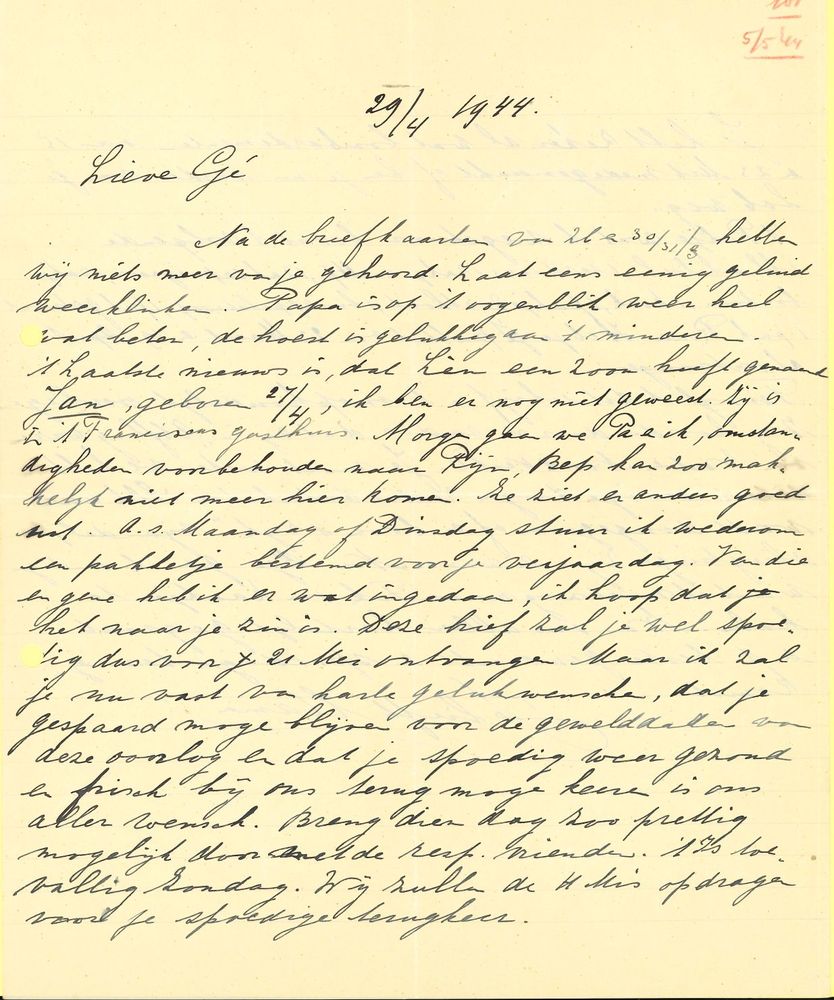 5/5 44
29/4 1944.
Lieve Gé
Na de briefkaarten van 26 en 30/31/3 hebben
wij niets meer van je gehoord. Laat eens eenig geluid
weerklinken. Papa is op 't oogenblik weer heel
wat beter, de hoest is gelukkig aan 't minderen.
't Laatste nieuws is, dat Lèn een zoon heeft genaamd
Jan, geboren 27/4, ik ben er nog niet geweest. Zij is
in 't Franciscus gasthuis. Morgen gaan we Pa en ik, omstan-
digheden voorbehouden naar Rijn, Bep kan zoo mak-
kelijk niet meer hier komen. Ze ziet er anders goed
uit. A.s. Maandag of Dinsdag stuur ik wederom
een pakketje bestemd voor je verjaardag. Van die
en gene heb ik er wat ingedaan, ik hoop dat je
het naar je zin is. Deze brief zal je wel spoe-
dig dus voor 21 Mei ontvangen Maar ik zal
je nu vast van harte gelukwenschen, dat je
gespaard moge blijven voor de gewelddaden van
deze oorlog en dat je spoedig weer gezond
en frisch bij ons terug moge keeren is ons
aller wensch. Breng dien dag zoo prettig
mogelijk door met de resp. vrienden. 't Is toe-
vallig Zondag. Wij zullen de H Mis opdragen
voor je spoedige terugkeer.